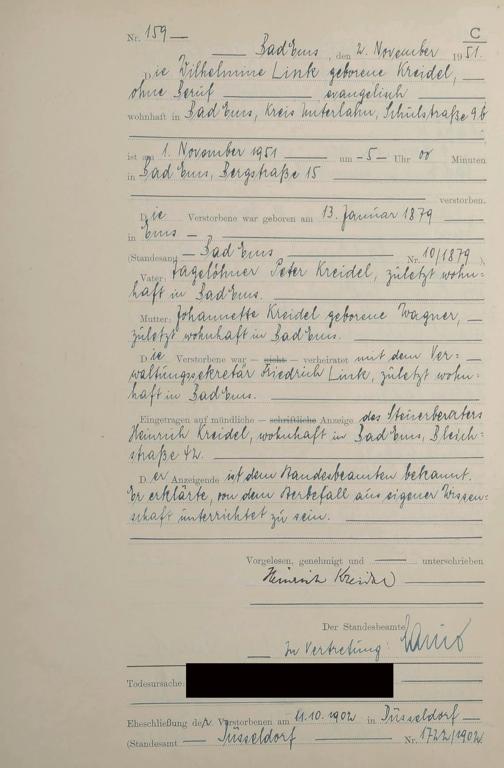 C
Nr. 159
Bad Ems, den 2. November 1951.
Die Wilhelmine Link geborene Kreidel,
ohne Beruf evangelisch
wohnhaft in Bad Ems, Kreis Unterlahn, Schulstraße 9b
ist am 1. November 1951 um 5 Uhr 00 Minuten
in Bad Ems, Bergstraße 15
verstorben.
Die Verstorbene war geboren am 13. Januar 1879
in Ems
(Standesamt Bad Ems Nr. 10/1879).
Vater: Tagelöhner Peter Kreidel, zuletzt wohn=
haft in Bad Ems.
Mutter: Johannette Kreidel geborene Wagner,
zuletzt wohnhaft in Bad Ems.
Die Verstorbene war — nicht — verheiratet mit dem Ver=
waltungssekretär Friedrich Link, zuletzt wohn=
haft in Bad Ems.
Eingetragen auf mündliche — schriftliche Anzeige des Steuerberaters
Heinrich Kreidel, wohnhaft in Bad Ems, Bleich=
straße 42.
Der Anzeigende ist dem Standesbeamten bekannt.
Er erklärte, von dem Sterbefall aus eigener Wissen=
schaft unterrichtet zu sein.
Vorgelesen, genehmigt und unterschrieben
Heinrich Kreidel
Der Standesbeamte
In Vertretung:
Todesursache:
Eheschließung der Verstorbenen am 11.10.1902 in Düsseldorf
(Standesamt Düsseldorf Nr. 1722/1902.